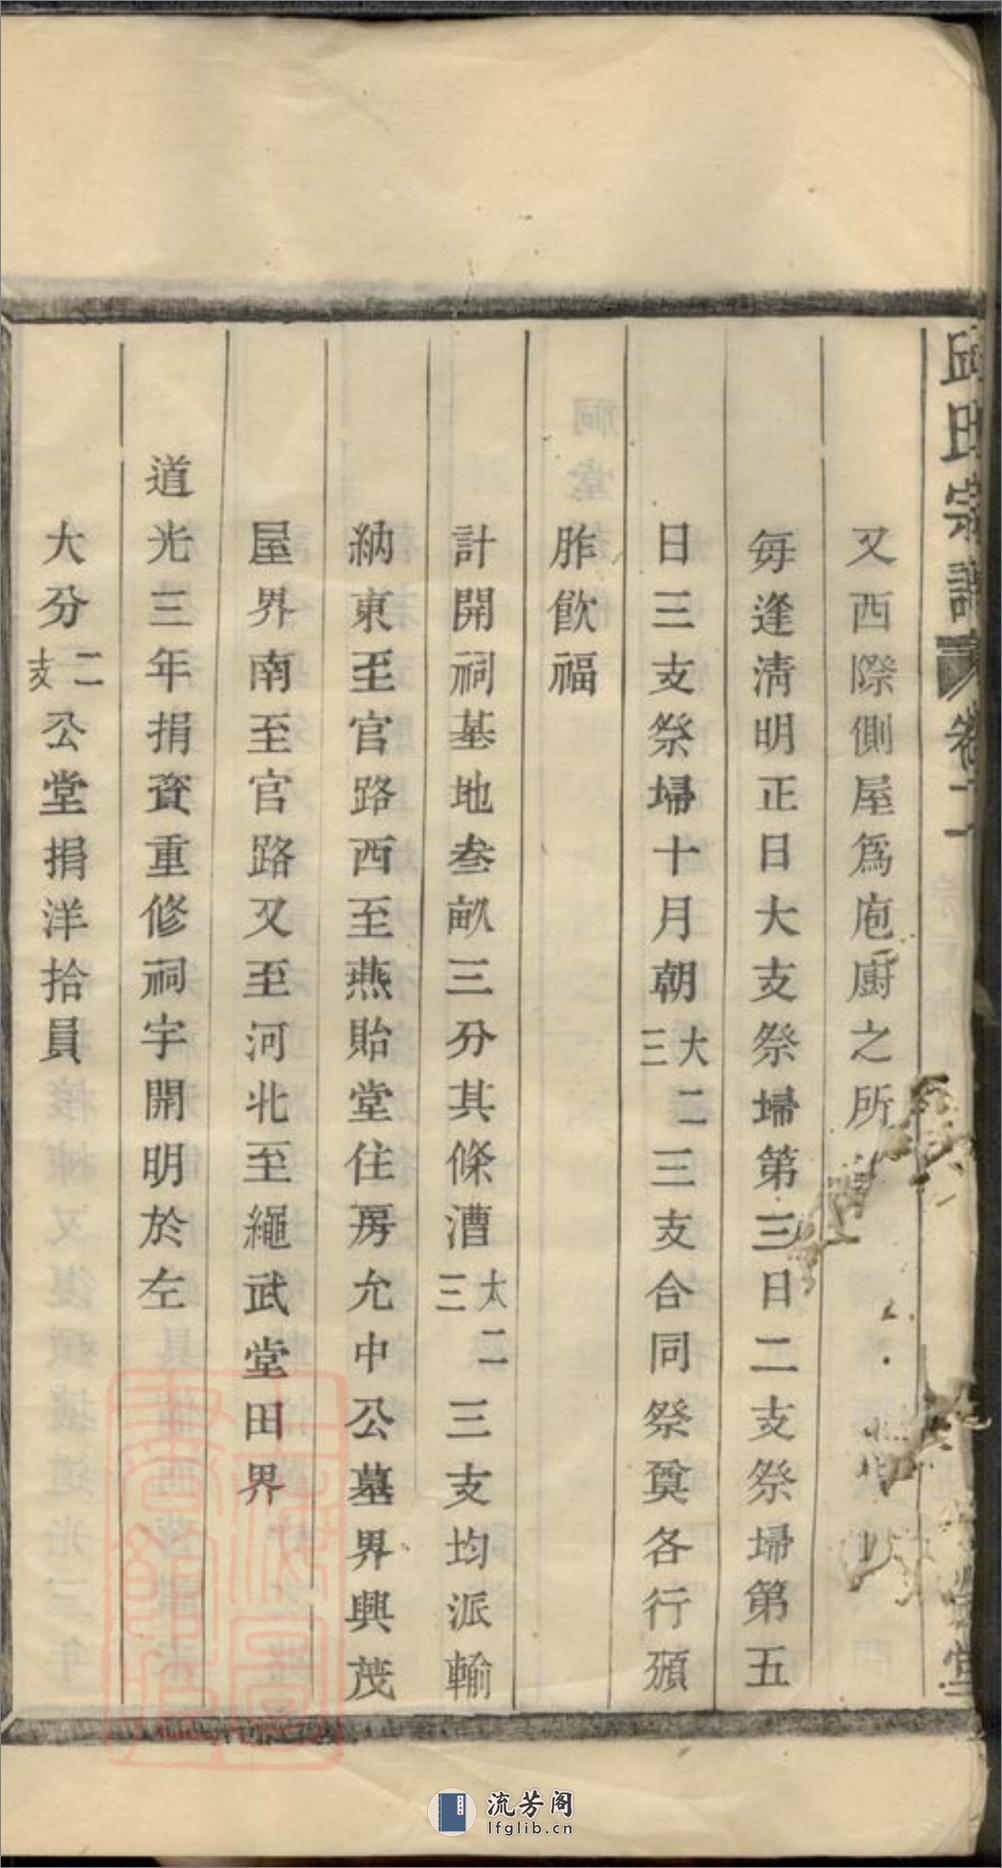 邱氏宗譜 卷十一
又西際側屋爲庖廚之所
每逢淸明正日大支祭埽第三日二支祭埽第五
日三支祭埽十月朝大二三三支合同祭奠各行頒
胙飮福
計開祠基地叁畝三分其條漕大二三三支均派輸
納東至官路西至燕貽堂住房允中公墓界興茂
屋界南至官路又至河北至繩武堂田界
道光三年捐資重修祠宇開明於左
大分二支公堂捐洋拾員
流芳阁
lfglib.cn